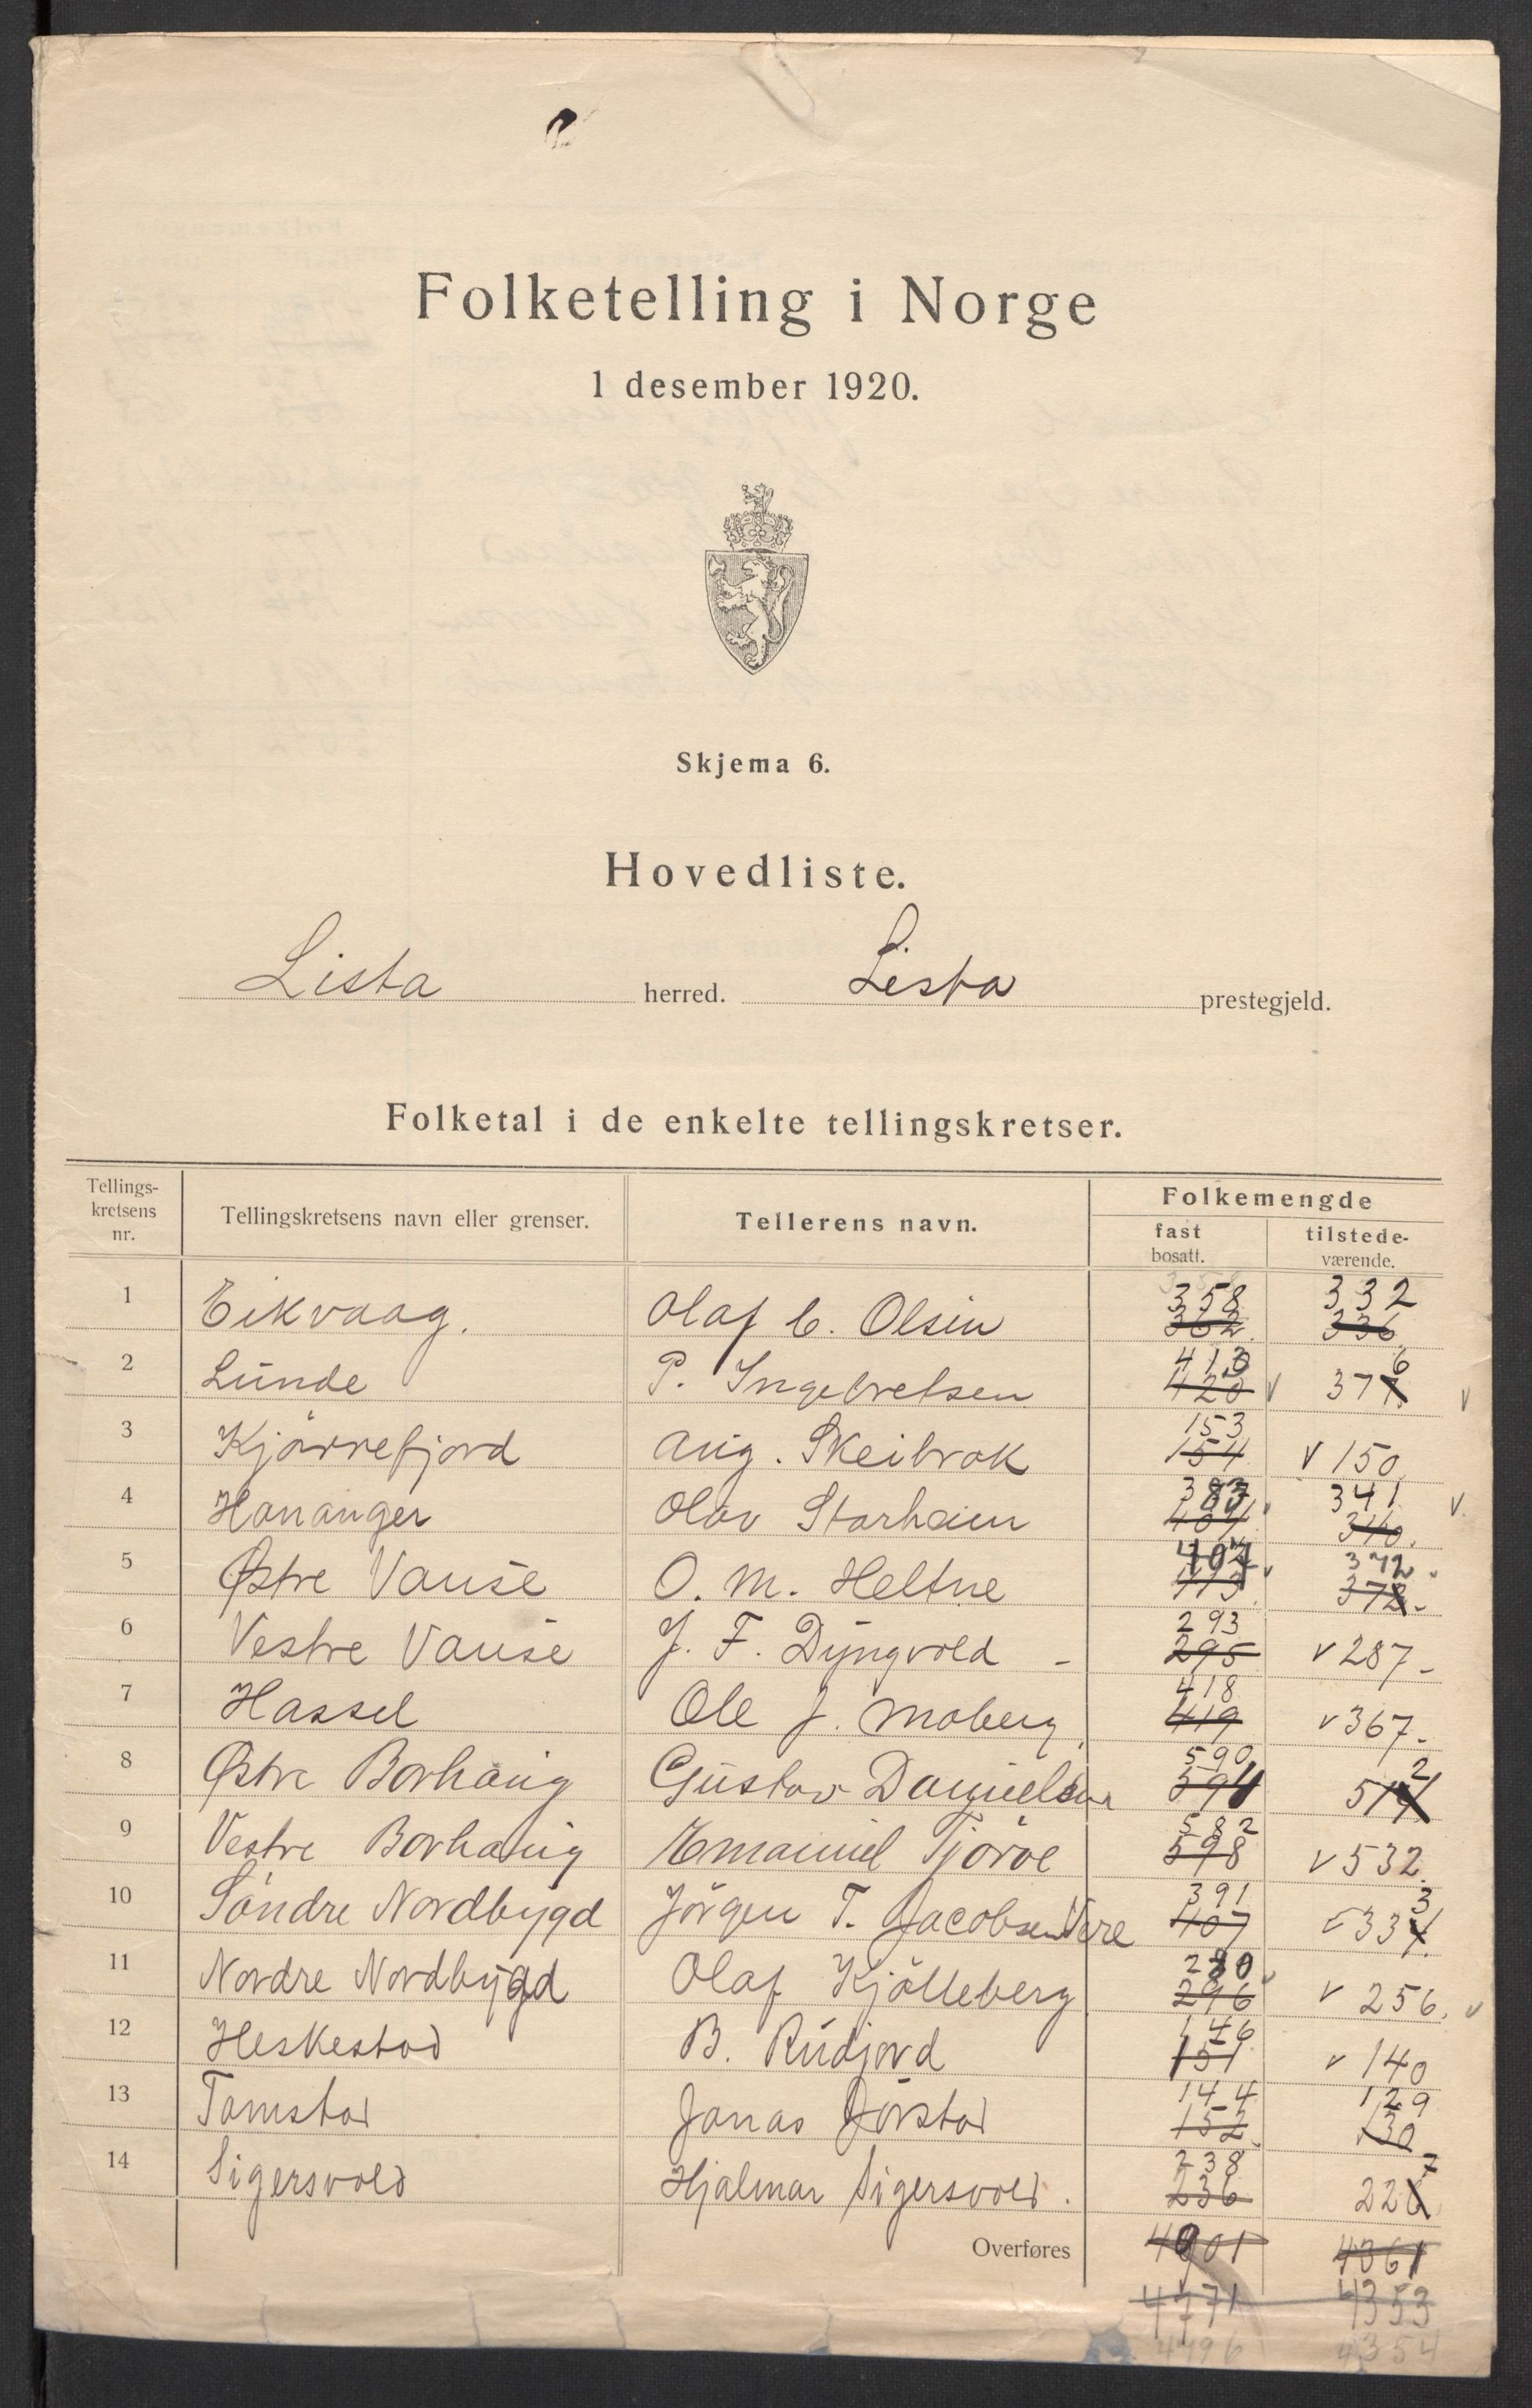 Folketelling i Norge
1 desember 1920.
Skjema 6.
Hovedliste.
Lista herred. Lista prestegjeld.
Folketal i de enkelte tellingskretser.
Tellings-kretsens nr. Tellingskretsens navn eller grenser. Tellerens navn. Folkemengde
fast bosatt. tilstede-værende.
358 332
1 Eikvaag. Olaf C. Olsen 362. 336
413 6
2 Lunde P. Ingebretsen 420 v 377. v
153
3 Kjørrefjord Aug. Skeibrok 154 v 150
383 341 v
4 Hananger Olav Storheim 404 340.
407 v 372
5 Østre Vanse O. M. Heltne 413 378.
293
6 Vestre Vanse J. F. Dyngvold - 295 v 287-
418
7 Hassel Ole J. Moberg. 419 v 367-
590 2
8 Østre Borhaug Gustav Danielsen 594 514
582
9 Vestre Borhaug Emanuel Tjørve 598 v 532
391 3
10 Søndre Nordbygd Jørgen T. Jacobsen Vere 407 v 334.
280
11 Nordre Nordbygd Olaf Kjølleberg 296 v 256. v
146
12 Heskestad B. Rudjord 151 v 140
144 129
13 Tomstad Jonas Jørstad 152 130
238 7
14 Sigersvold Hjalmar Sigersvold. 236 226
Overføres 4901 4361
4771 4353
4796 4354